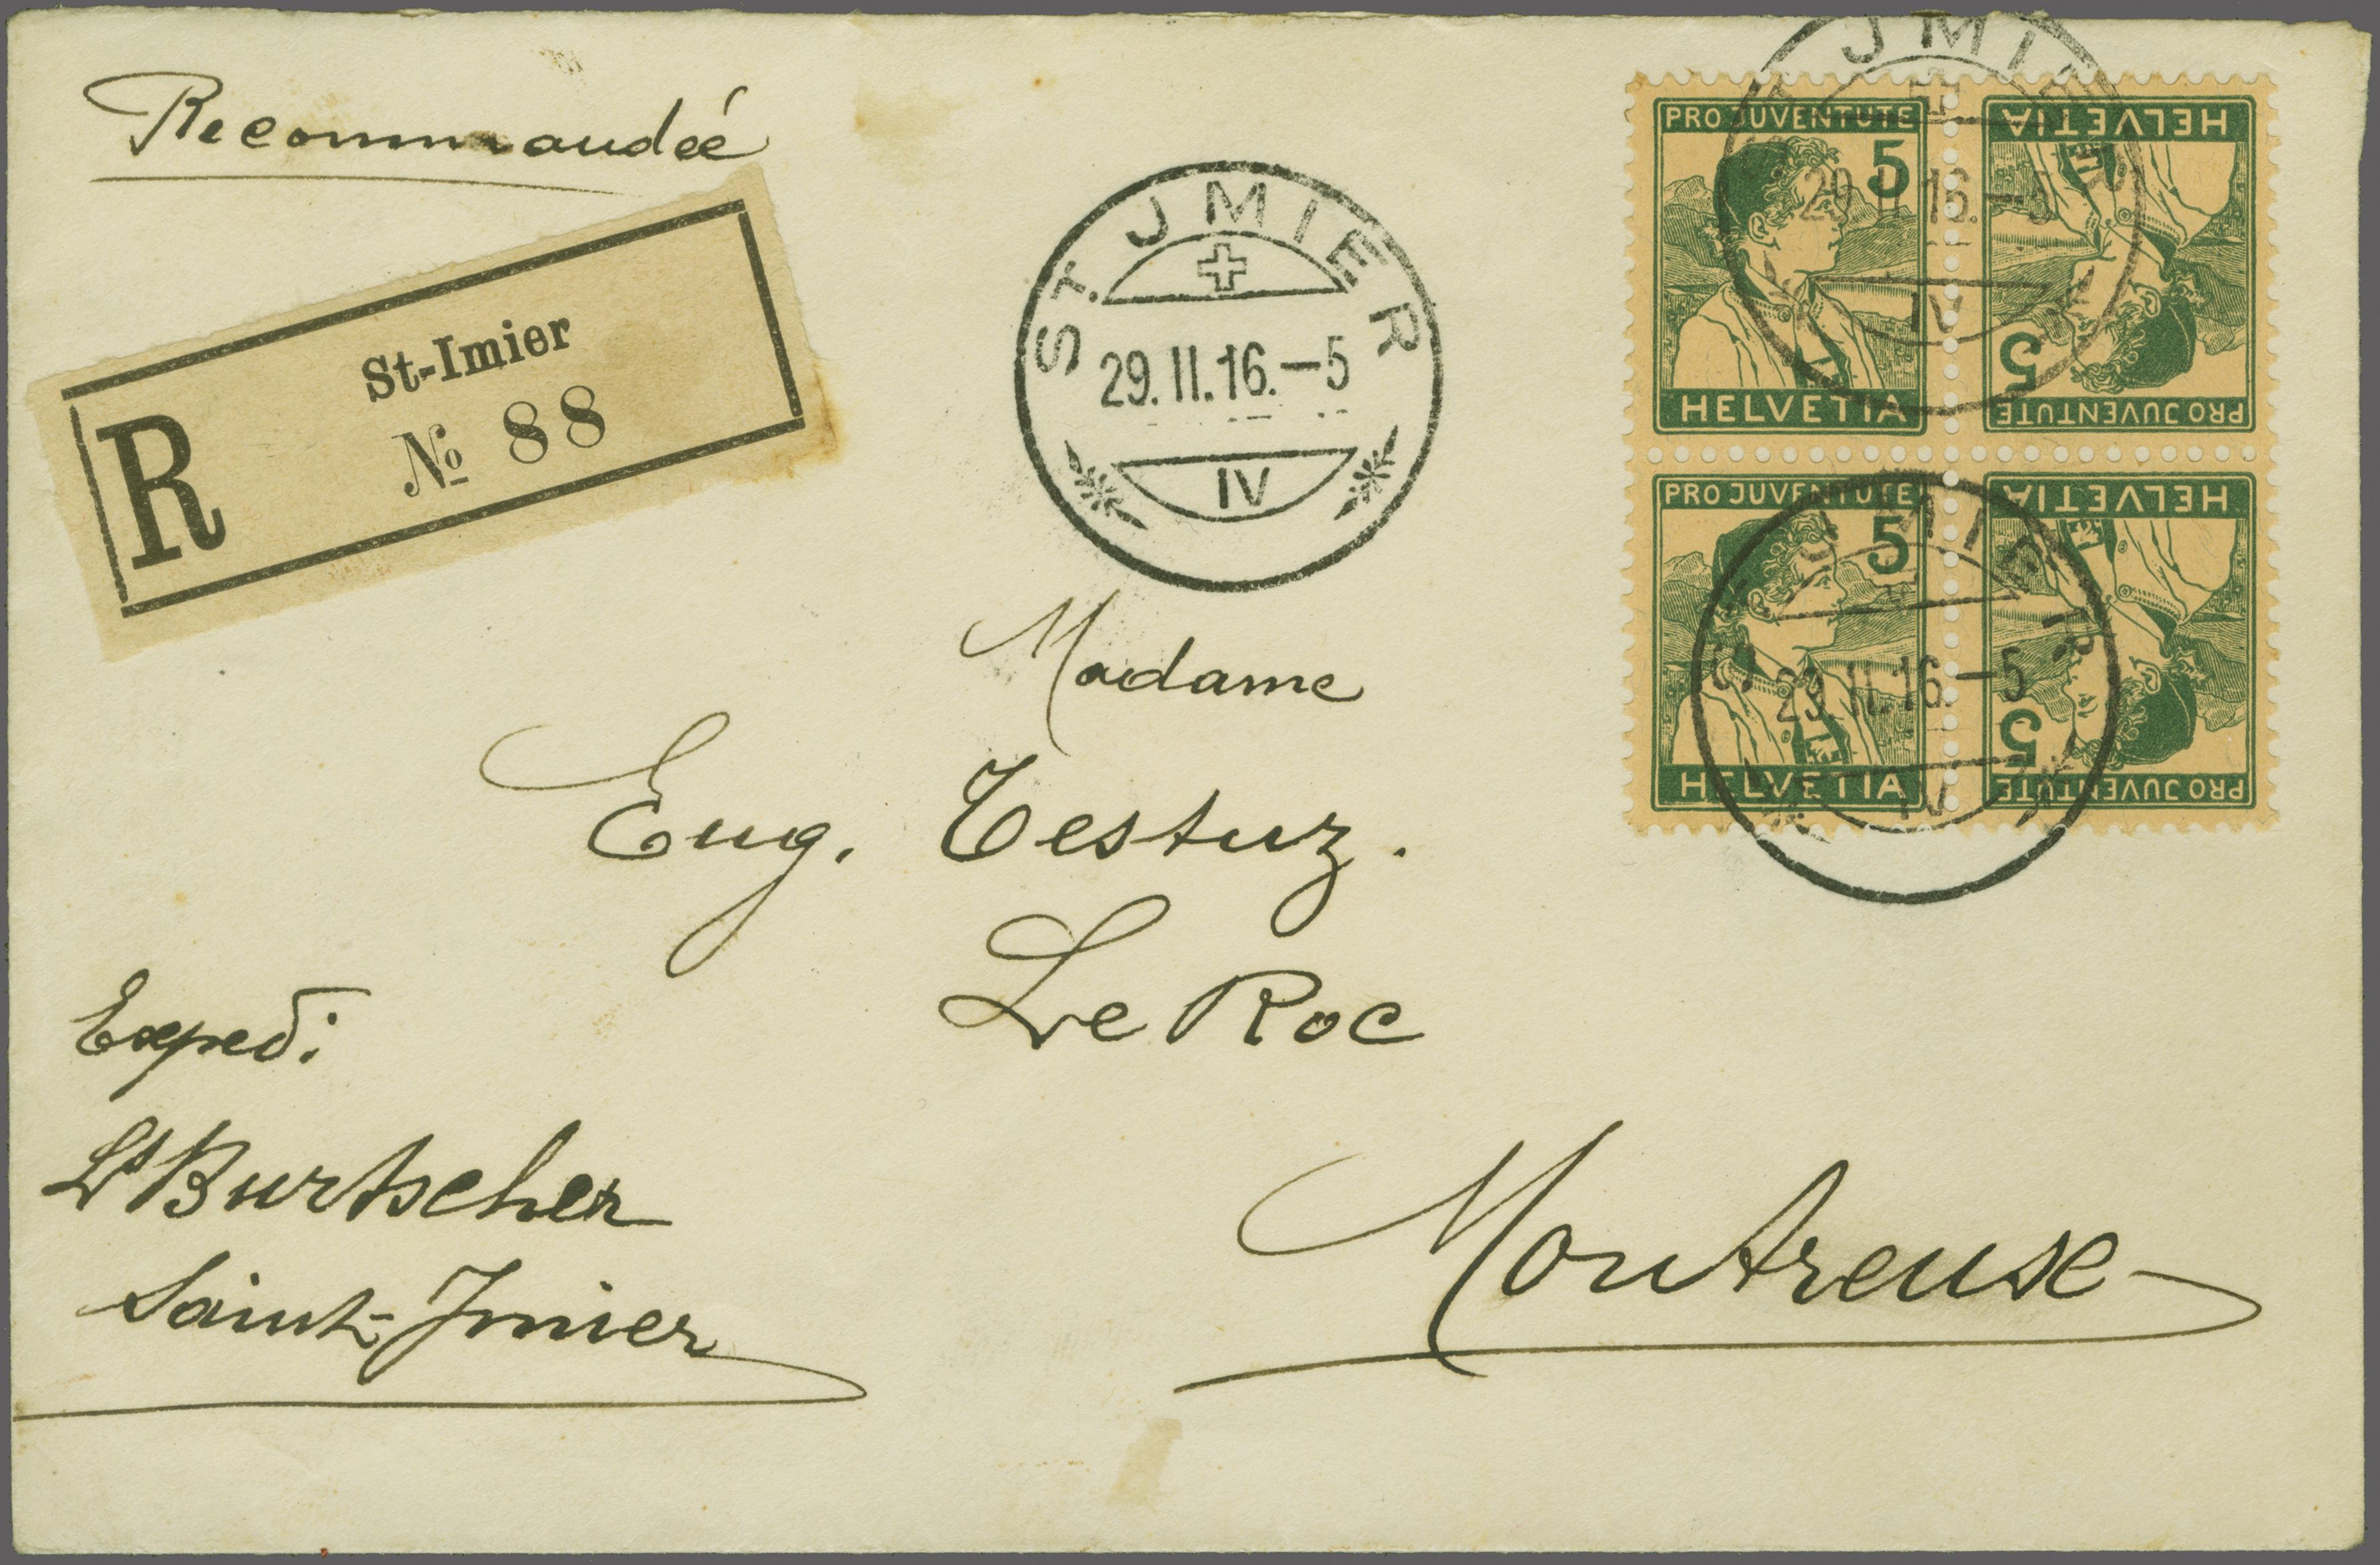 Recommandée
R
St-Imier
№ 88
ST. JMIER
29.II.16.—5
IV
JMIE
29.II.16.—5
IV
PRO JUVENTUTE
5
HELVETIA
HELVETIA
5
PRO JUVENTUTE
PRO JUVENTUTE
5
HELVETIA
HELVETIA
5
PRO JUVENTUTE
JMIER
29.II.16.—5
IV
Madame
Eug. Testuz.
Le Roc
Montreux
Exped:
Ls Burtscher
Saint-Imier